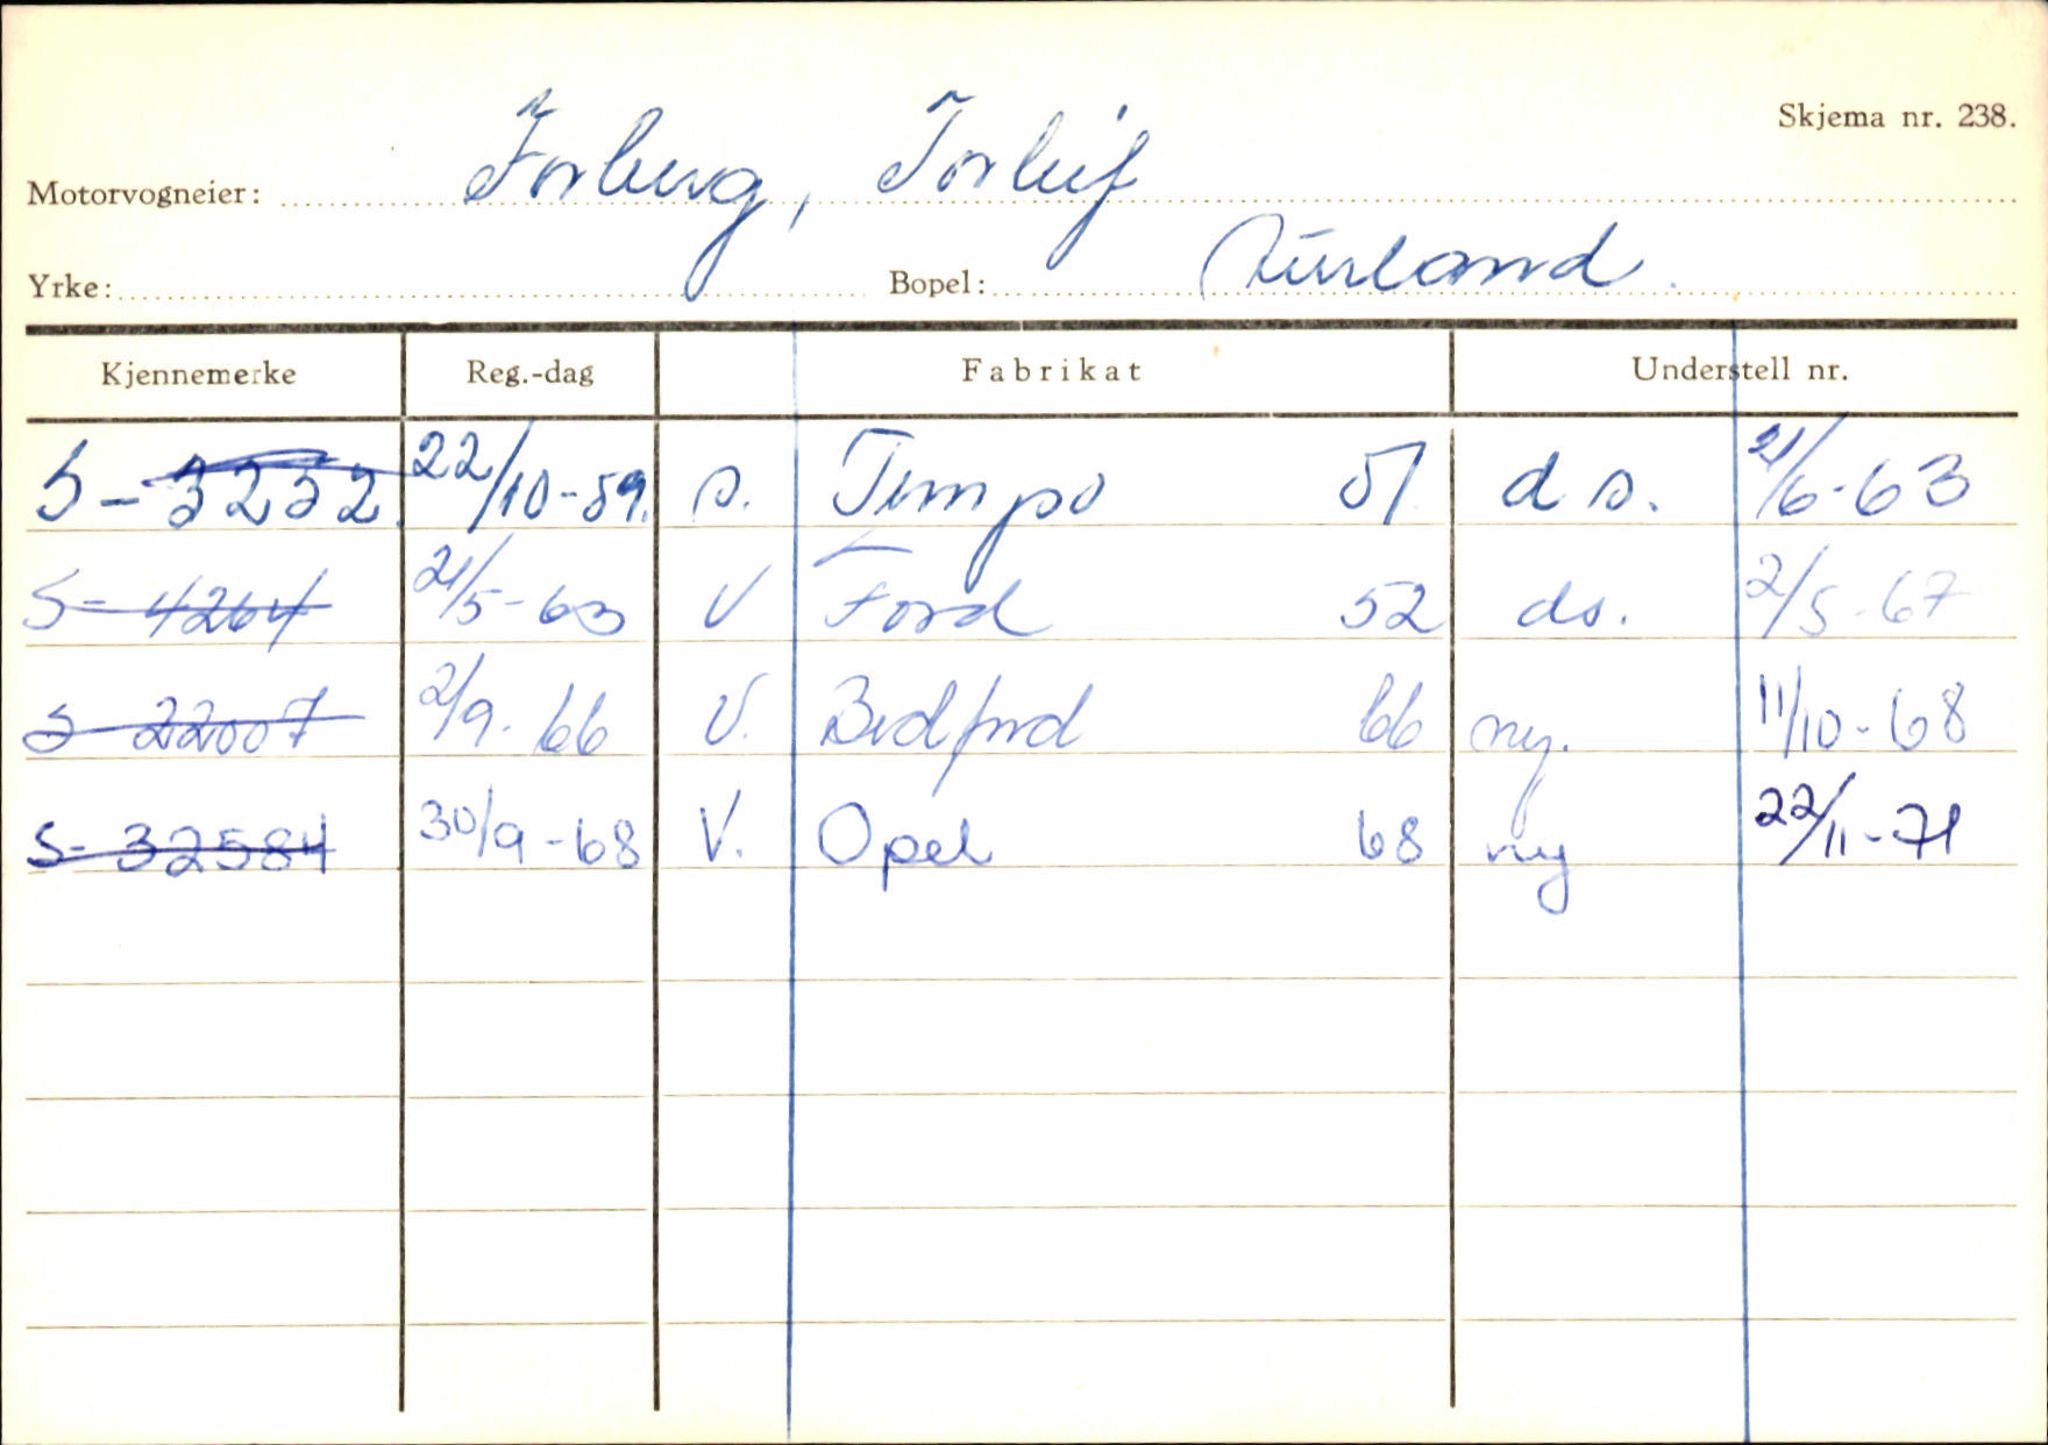 Skjema nr. 238.
Motorvogneier: Forberg, Torleif
Yrke: Bopel: Aurland.
Kjennemerke Reg.-dag Fabrikat Understell nr.
S-3232 22/10-59. s. Tempo 51 d s. 21/6-63
S-4264 21/5-63 V Ford 52 ds. 2/5-67
S 22007 2/9-66 V. Bedford 66 ny. 11/10-68
S-32584 30/9-68 V. Opel 68 ny 22/11-71